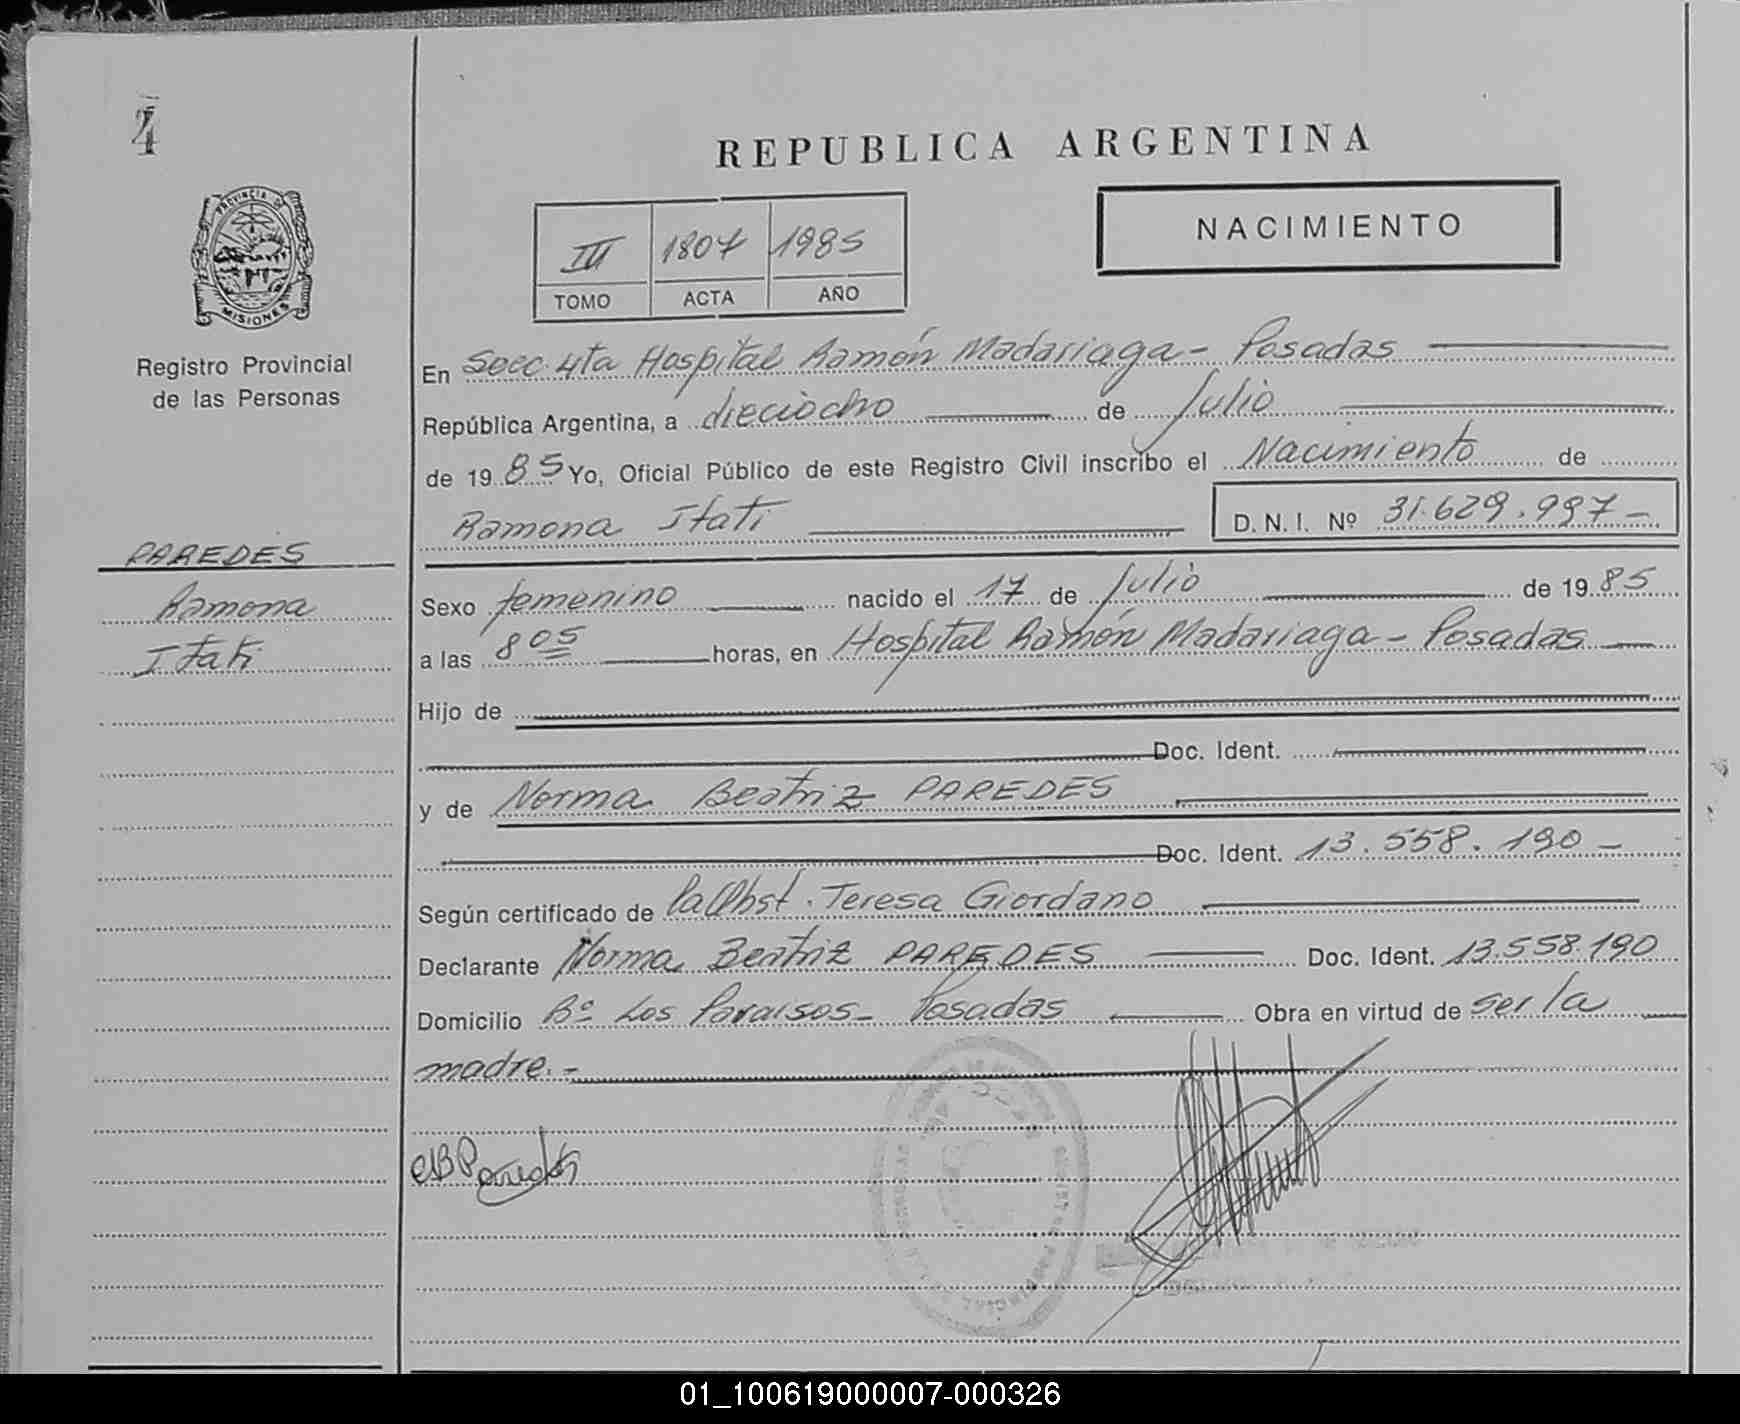 4
REPUBLICA ARGENTINA
PROVINCIA DE
MISIONES
Registro Provincial
de las Personas
III 1807 1985
TOMO ACTA AÑO
NACIMIENTO
En Secc 4ta Hospital Ramón Madariaga - Posadas
República Argentina, a dieciocho de Julio
de 1985 Yo, Oficial Público de este Registro Civil inscribo el Nacimiento de
Ramona Itatí D. N. I. Nº 31.629.997-
PAREDES
Ramona
Itatí
Sexo femenino nacido el 17 de Julio de 1985
a las 8 05 horas, en Hospital Ramón Madariaga - Posadas
Hijo de
Doc. Ident.
y de Norma Beatriz PAREDES
Doc. Ident. 13.558.190-
Según certificado de la Obst. Teresa Giordano
Declarante Norma Beatriz PAREDES Doc. Ident. 13.558.190
Domicilio Bº Los Paraisos - Posadas Obra en virtud de ser la
madre.-
01_100619000007-000326